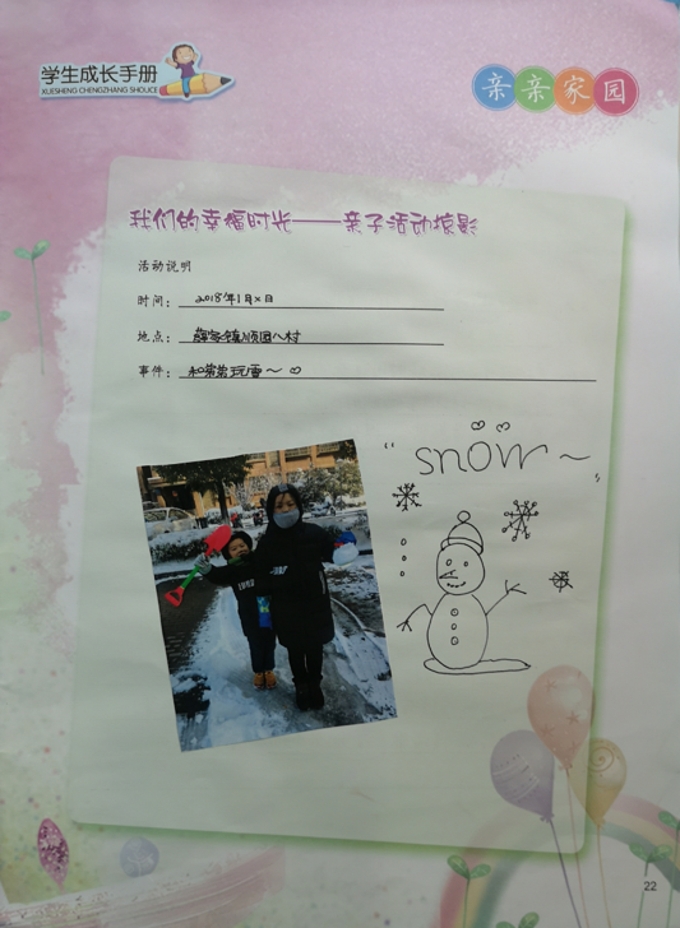 学生成长手册
XUESHENG CHENGZHANG SHOUCE
亲亲家园
我们的幸福时光——亲子活动掠影
活动说明
时间：2018年1月×日
地点：薛家镇顺园八村
事件：和弟弟玩雪～
“snow～”
22